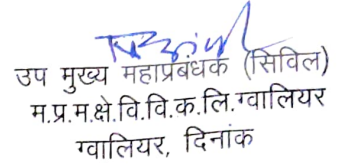 उप मुख्य महाप्रबंधक (सिविल)
म.प्र.म.क्षे.वि.वि.क.लि.ग्वालियर
ग्वालियर, दिनांक